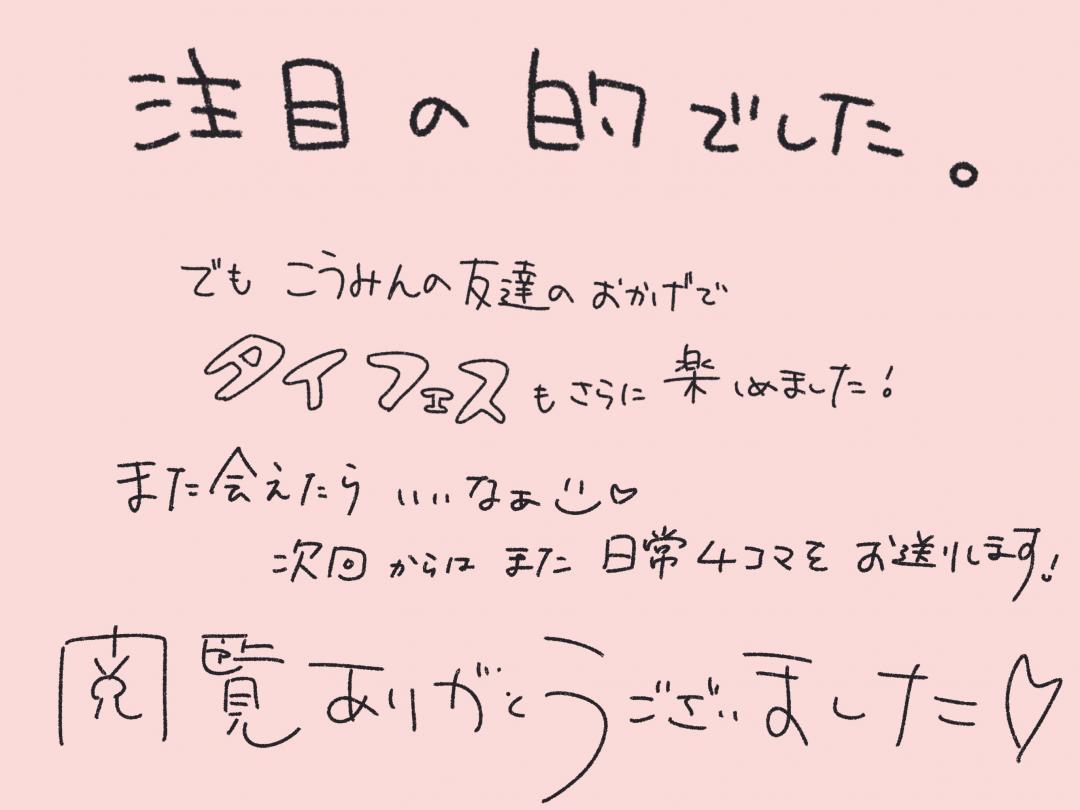 注目の的でした。
でも こうみんの友達の おかげで
タイフェスもさらに楽しめました!
また会えたら いいなぁ
次回からは また 日常4コマを お送りします!
閲覧ありがとうございました♡